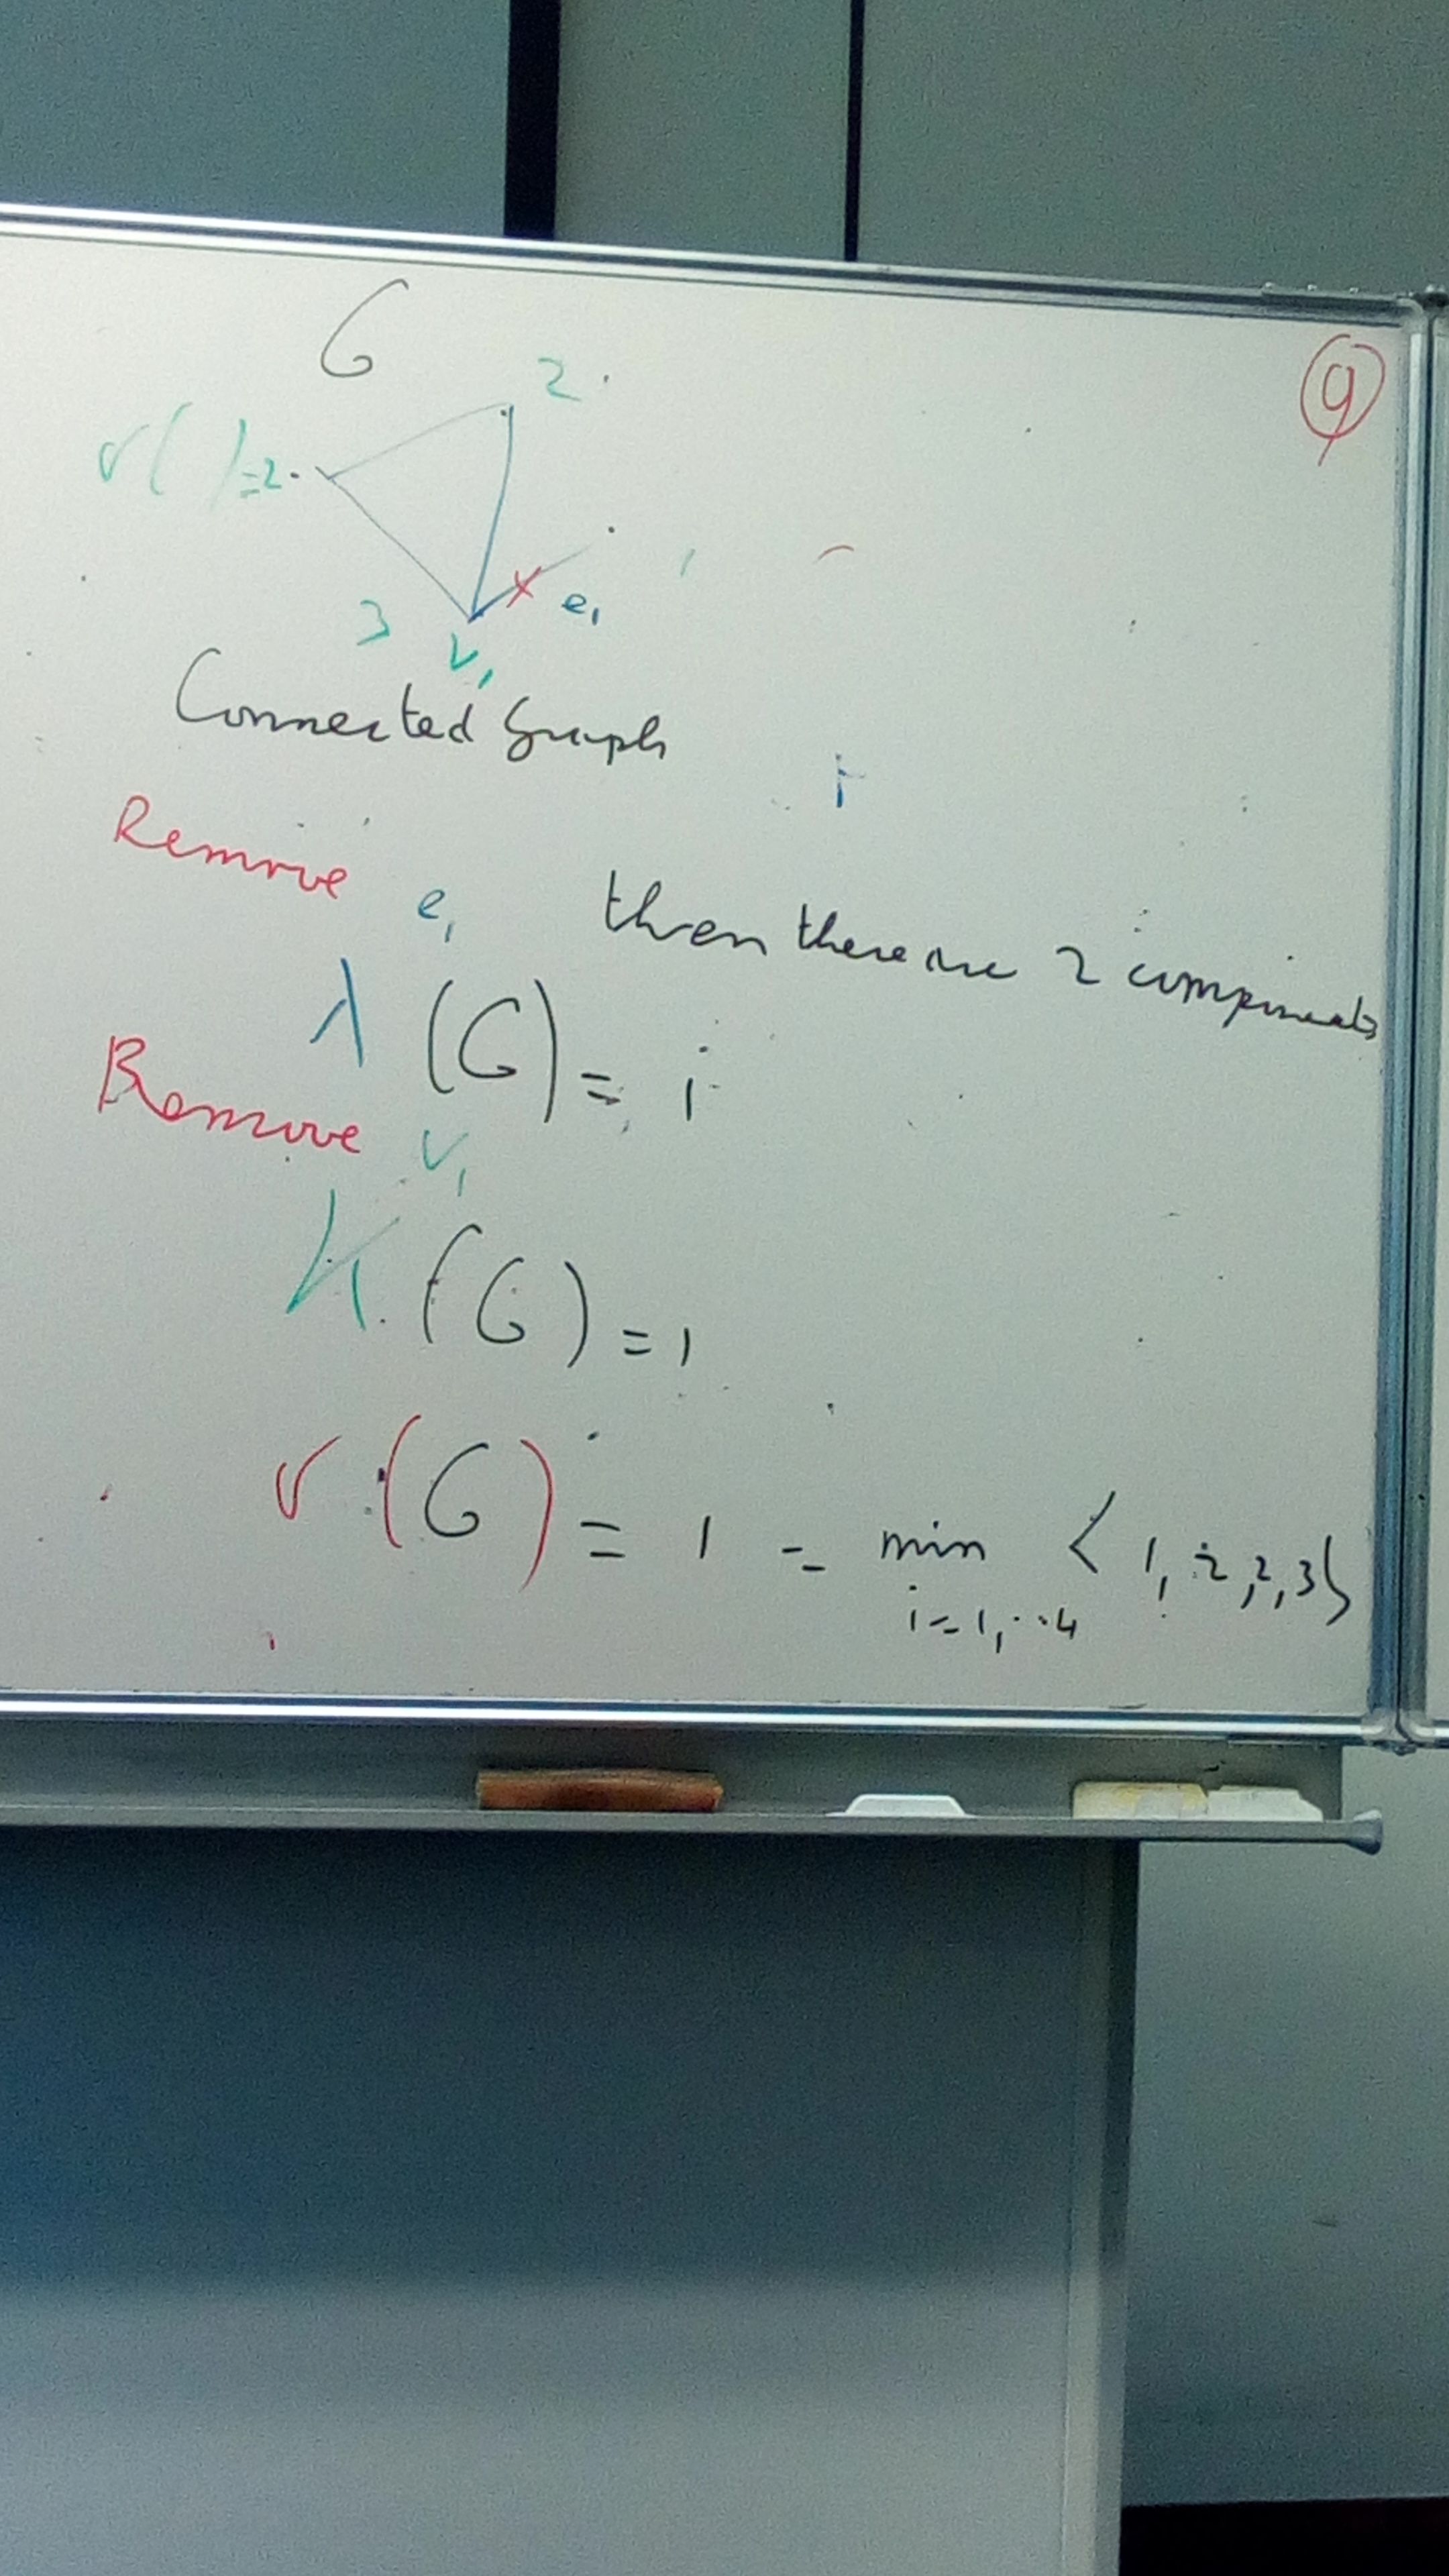 G
9
2
σ( )=2
1
e₁
3
v₁
Connected Graph
Remove e₁ then there are 2 components
λ(G) = 1
Remove v₁
κ(G) = 1
σ(G) = 1 = min {1, 2, 2, 3}
i=1,..4